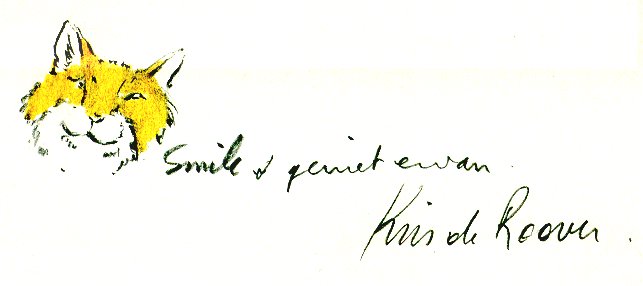 Smile & geniet ervan.
Kris de Roover.